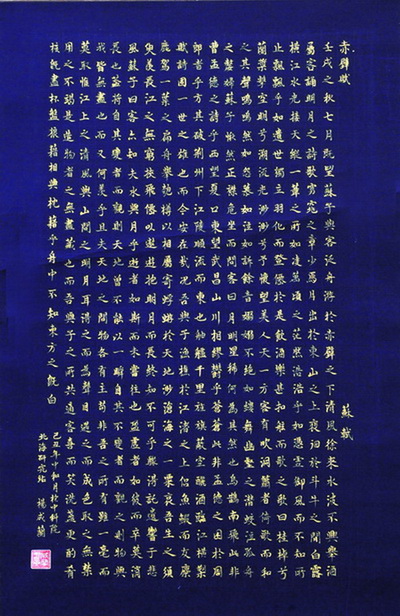 赤壁賦 蘇軾
壬戌之秋七月既望蘇子與客泛舟游於赤壁之下清風徐來水波不興舉酒
屬客誦明月之詩歌窈窕之章少焉月出於東山之上徘徊於斗牛之間白露
橫江水光接天縱一葦之所如凌萬頃之茫然浩浩乎如憑虛御風而不知所
止飄飄乎如遺世獨立羽化而登僊於是飲酒樂甚扣舷而歌之歌曰桂棹兮
蘭槳擊空明兮溯流光渺渺兮予懷望美人兮天一方客有吹洞簫者倚歌而和
之其聲嗚嗚然如怨如慕如泣如訴餘音嫋嫋不絕如縷舞幽壑之潛蛟泣孤舟
之嫠婦蘇子愀然正襟危坐而問客曰月明星稀何為其然也烏鵲南飛此非
曹孟德之詩乎西望夏口東望武昌山川相繆鬱乎蒼蒼此非孟德之困於周
郎者乎方其破荊州下江陵順流而東也舳艫千里旌旗蔽空釃酒臨江橫槊
賦詩固一世之雄也而今安在哉況吾與子漁樵於江渚之上侶魚蝦而友麋
鹿駕一葉之扁舟舉匏樽以相屬寄蜉蝣於天地渺滄海之一粟哀吾生之須
臾羨長江之無窮挾飛僊以遨遊抱明月而長終知不可乎驟得託遺響於悲
風蘇子曰客亦知夫水與月乎逝者如斯而未嘗往也盈虛者如彼而卒莫消
長也蓋將自其變者而觀則天地曾不能以一瞬自其不變者而觀之則物與
我皆無盡也而又何羨乎且夫天地之間物各有主苟非吾之所有雖一毫而
莫取惟江上之清風與山間之明月耳得之而為聲目遇之而成色取之無禁
用之不竭是造物者之無盡藏也而吾與子之所共適客喜而笑洗盞更酌肴
核既盡杯盤狼藉相與枕藉乎舟中不知東方之既白
己丑年中和月於中科院
北海研究站 楊 蘭